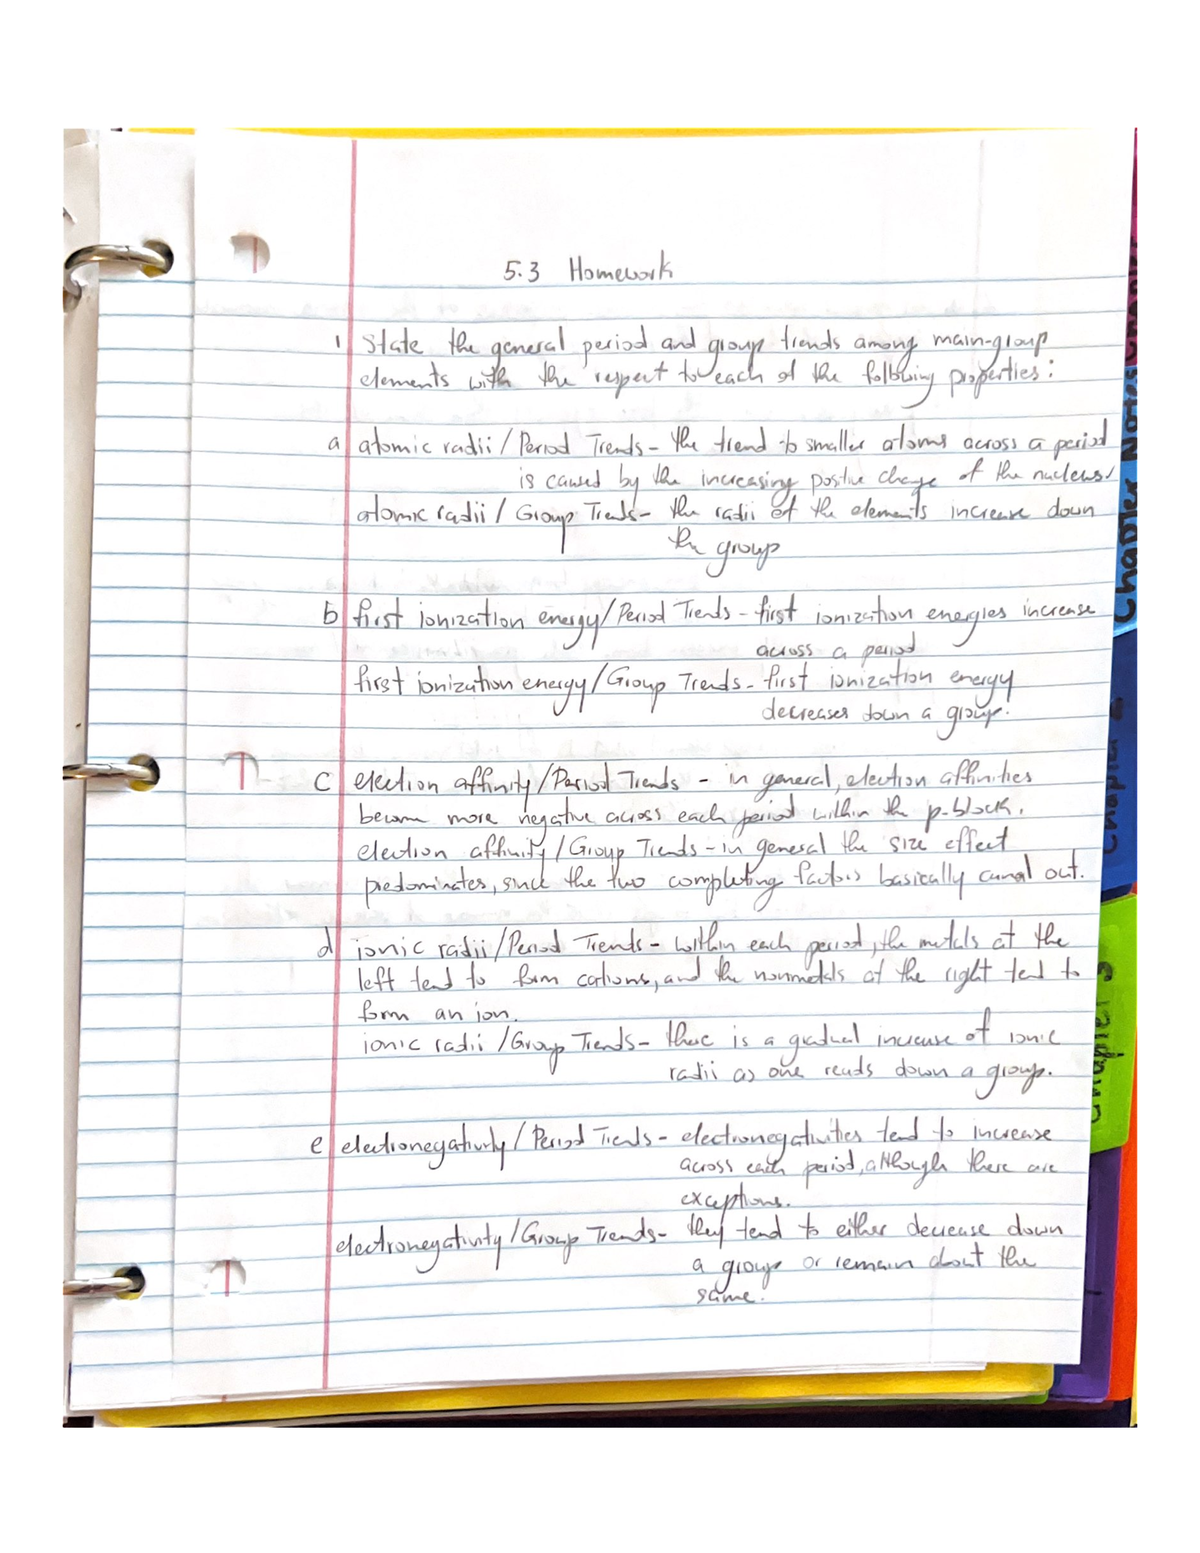 5.3 Homework
1 State the general period and group trends among main-group
elements with the respect to each of the following properties:
a atomic radii / Period Trends - the trend to smaller atoms across a period
is caused by the increasing positive charge of the nucleus.
atomic radii / Group Trends - the radii of the elements increase down
the group
b first ionization energy / Period Trends - first ionization energies increase
across a period
first ionization energy / Group Trends - first ionization energy
decreases down a group.
c electron affinity / Period Trends - in general, electron affinities
become more negative across each period within the p-block.
electron affinity / Group Trends - in general the size effect
predominates, since the two completing factors basically cancel out.
d ionic radii / Period Trends - within each period, the metals at the
left tend to form cations, and the nonmetals at the right tend to
form an ion.
ionic radii / Group Trends - there is a gradual increase of ionic
radii as one reads down a group.
e electronegativity / Period Trends - electronegativities tend to increase
across each period, although there are
exceptions.
electronegativity / Group Trends - they tend to either decrease down
a group or remain about the
same.
Chapter Notes
Chapter 2
Chapter 3